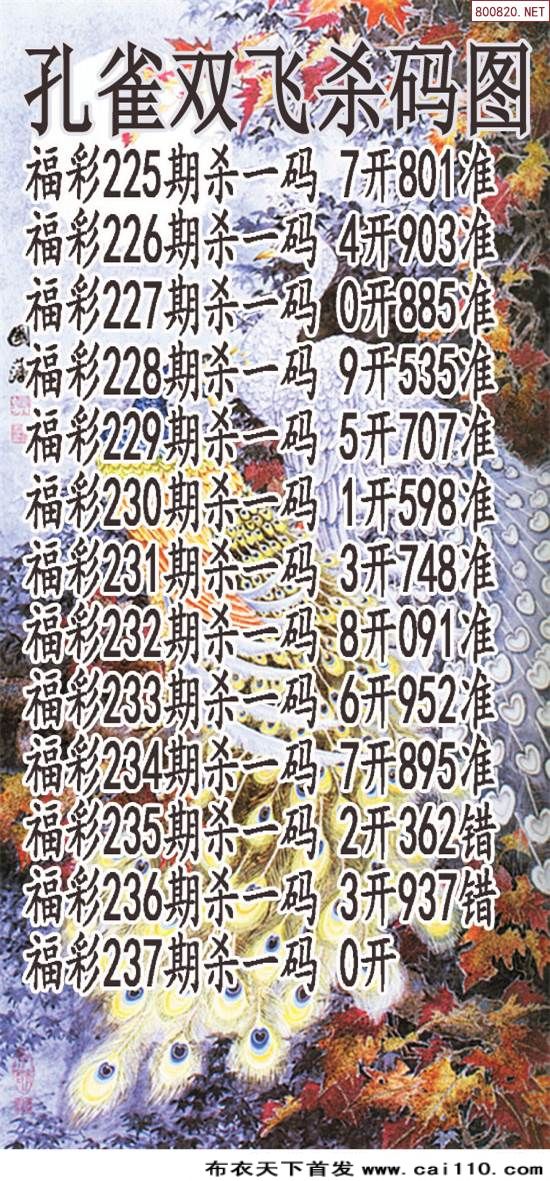 800820.NET
孔雀双飞杀码图
福彩225期杀一码 7开801准
福彩226期杀一码 4开903准
福彩227期杀一码 0开885准
福彩228期杀一码 9开535准
福彩229期杀一码 5开707准
福彩230期杀一码 1开598准
福彩231期杀一码 3开748准
福彩232期杀一码 8开091准
福彩233期杀一码 6开952准
福彩234期杀一码 7开895准
福彩235期杀一码 2开362错
福彩236期杀一码 3开937错
福彩237期杀一码 0开
布衣天下首发 www.cai110.com